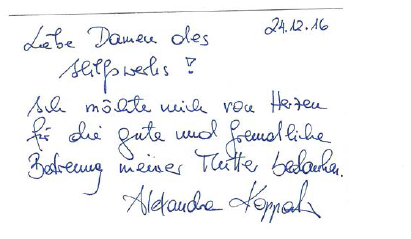 24.12.16
Liebe Damen des
Hilfswerks !
Ich möchte mich von Herzen
für die gute und freundliche
Betreuung meiner Mutter bedanken.
Alexandra